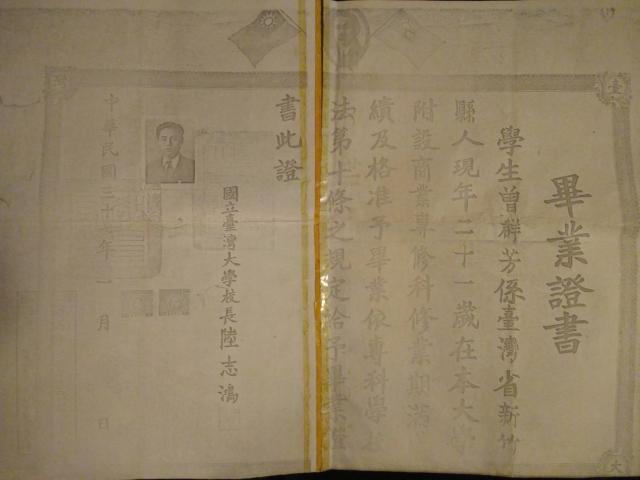 畢業證書
學生曾群芳係臺灣省新竹
縣人現年二十一歲在本大學
附設商業專修科修業期滿
績及格准予畢業依專科學校
法第十條之規定給予畢業證
書此證
國立臺灣大學校長陸志鴻
中華民國三十七年一月 日
臺
大